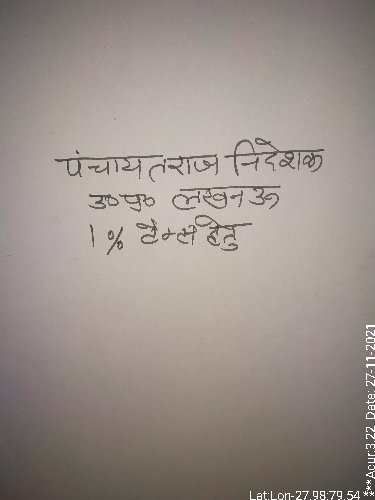 पंचायतराज निदेशक
उ०प्र० लखनऊ
1% टैक्स हेतु
Lat:Lon-27.98:79.54
***Acur:3.22 Date: 27-11-2021